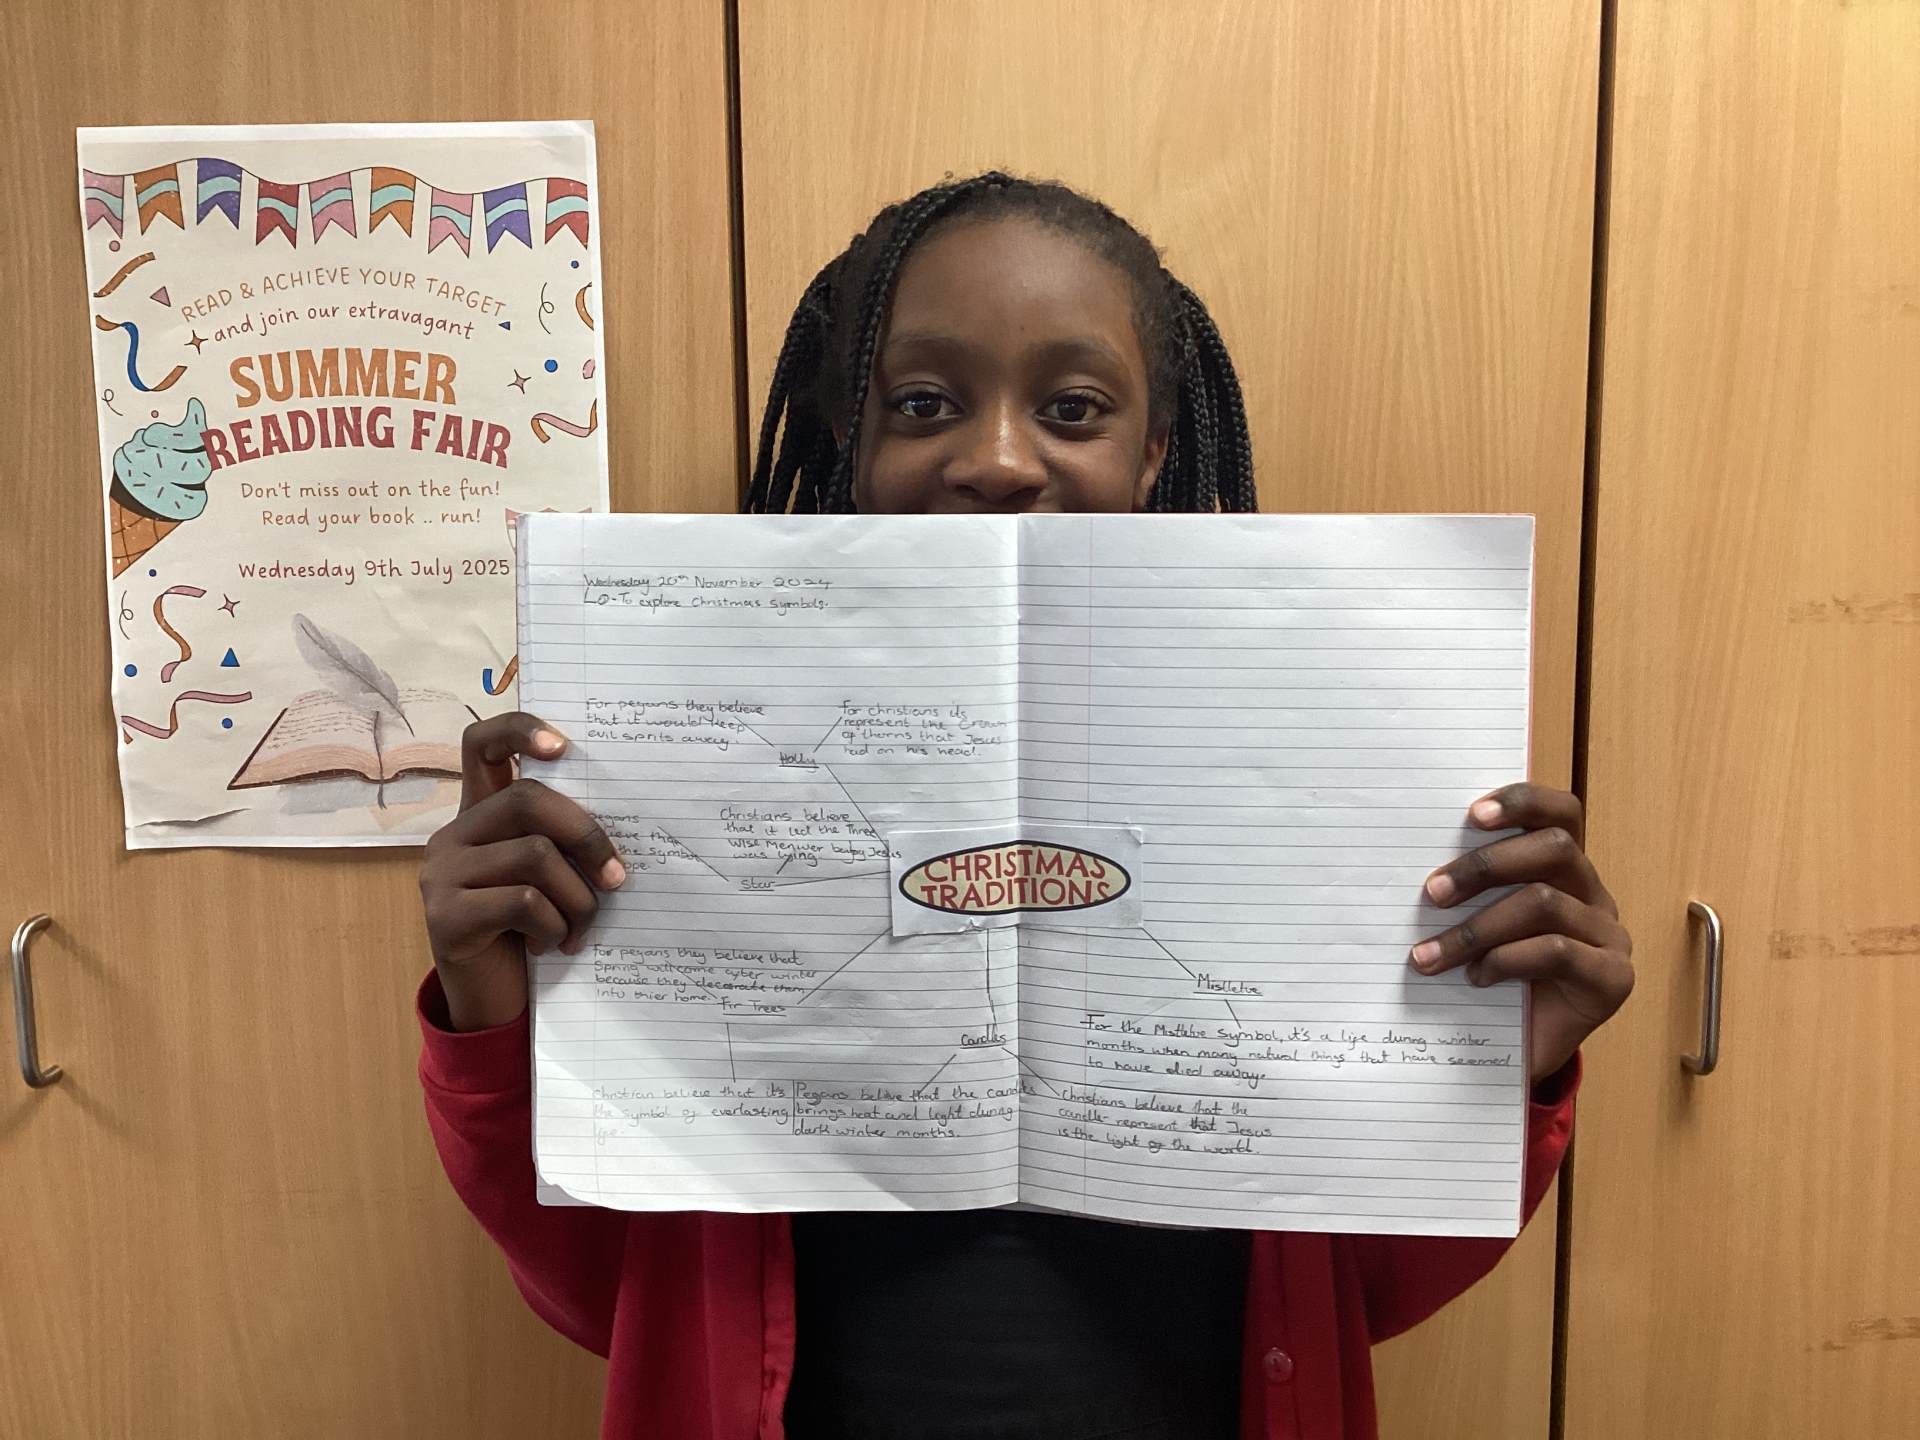 READ & ACHIEVE YOUR TARGET
and join our extravagant
SUMMER
READING FAIR
Don't miss out on the fun!
Read your book .. run!
Wednesday 9th July 2025
Wednesday 20th November 2024
LO-To explore Christmas symbols.
For pegans they believe
that it would keep
evil sprits away.
For christians its
represent the Crown
of thorns that Jesus
had on his head.
Holly
pegans
the symbol
Christians believe
that it led the Three
Wise Men
was lying.
Star
CHRISTMAS
TRADITIONS
For pegans they believe that
Spring will come after winter
because they decorate them
into thier home.
Fir Trees
christian believe that it's
the symbol of everlasting
life.
Candles
Pegans believe that the candles
brings heat and light during
dark winter months.
Christians believe that the
candle represent that Jesus
is the light of the world.
Mistletoe
For the Mistletoe symbol, it's a life during winter
months when many natural things that have seemed
to have died away.